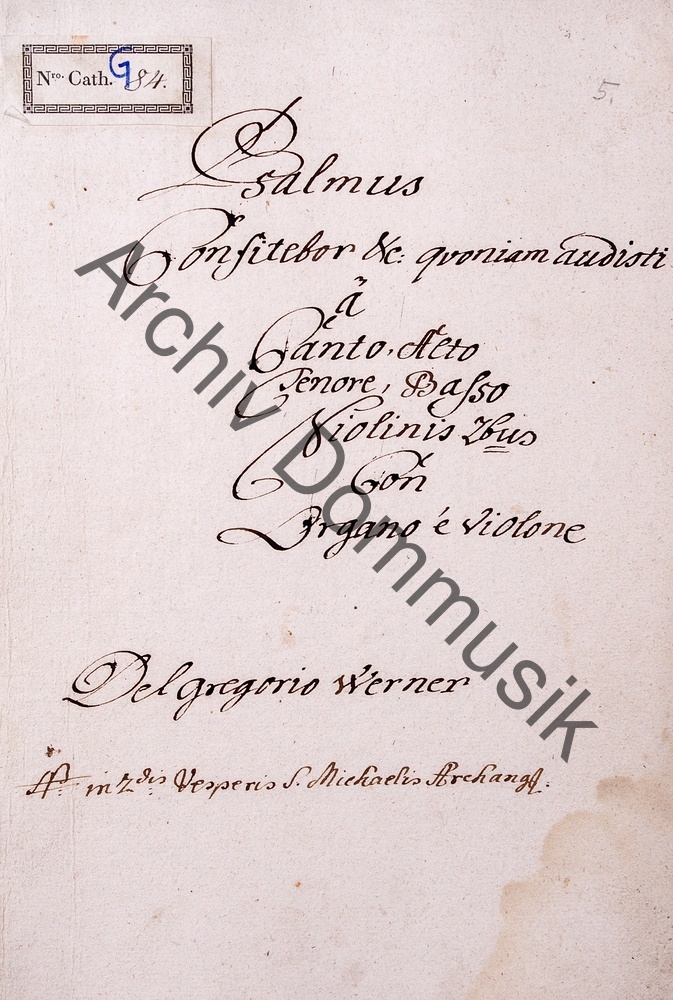 Nro. Cath. G 84.
5.
Psalmus
Confitebor &c: qvoniam audisti
â
Canto, Alto
Tenore, Basso
Violinis 2bus
Con
Organo é Violone
Del gregorio Werner
in 2dis Vesperis S. Michaelis Archang
Archiv Dommusik